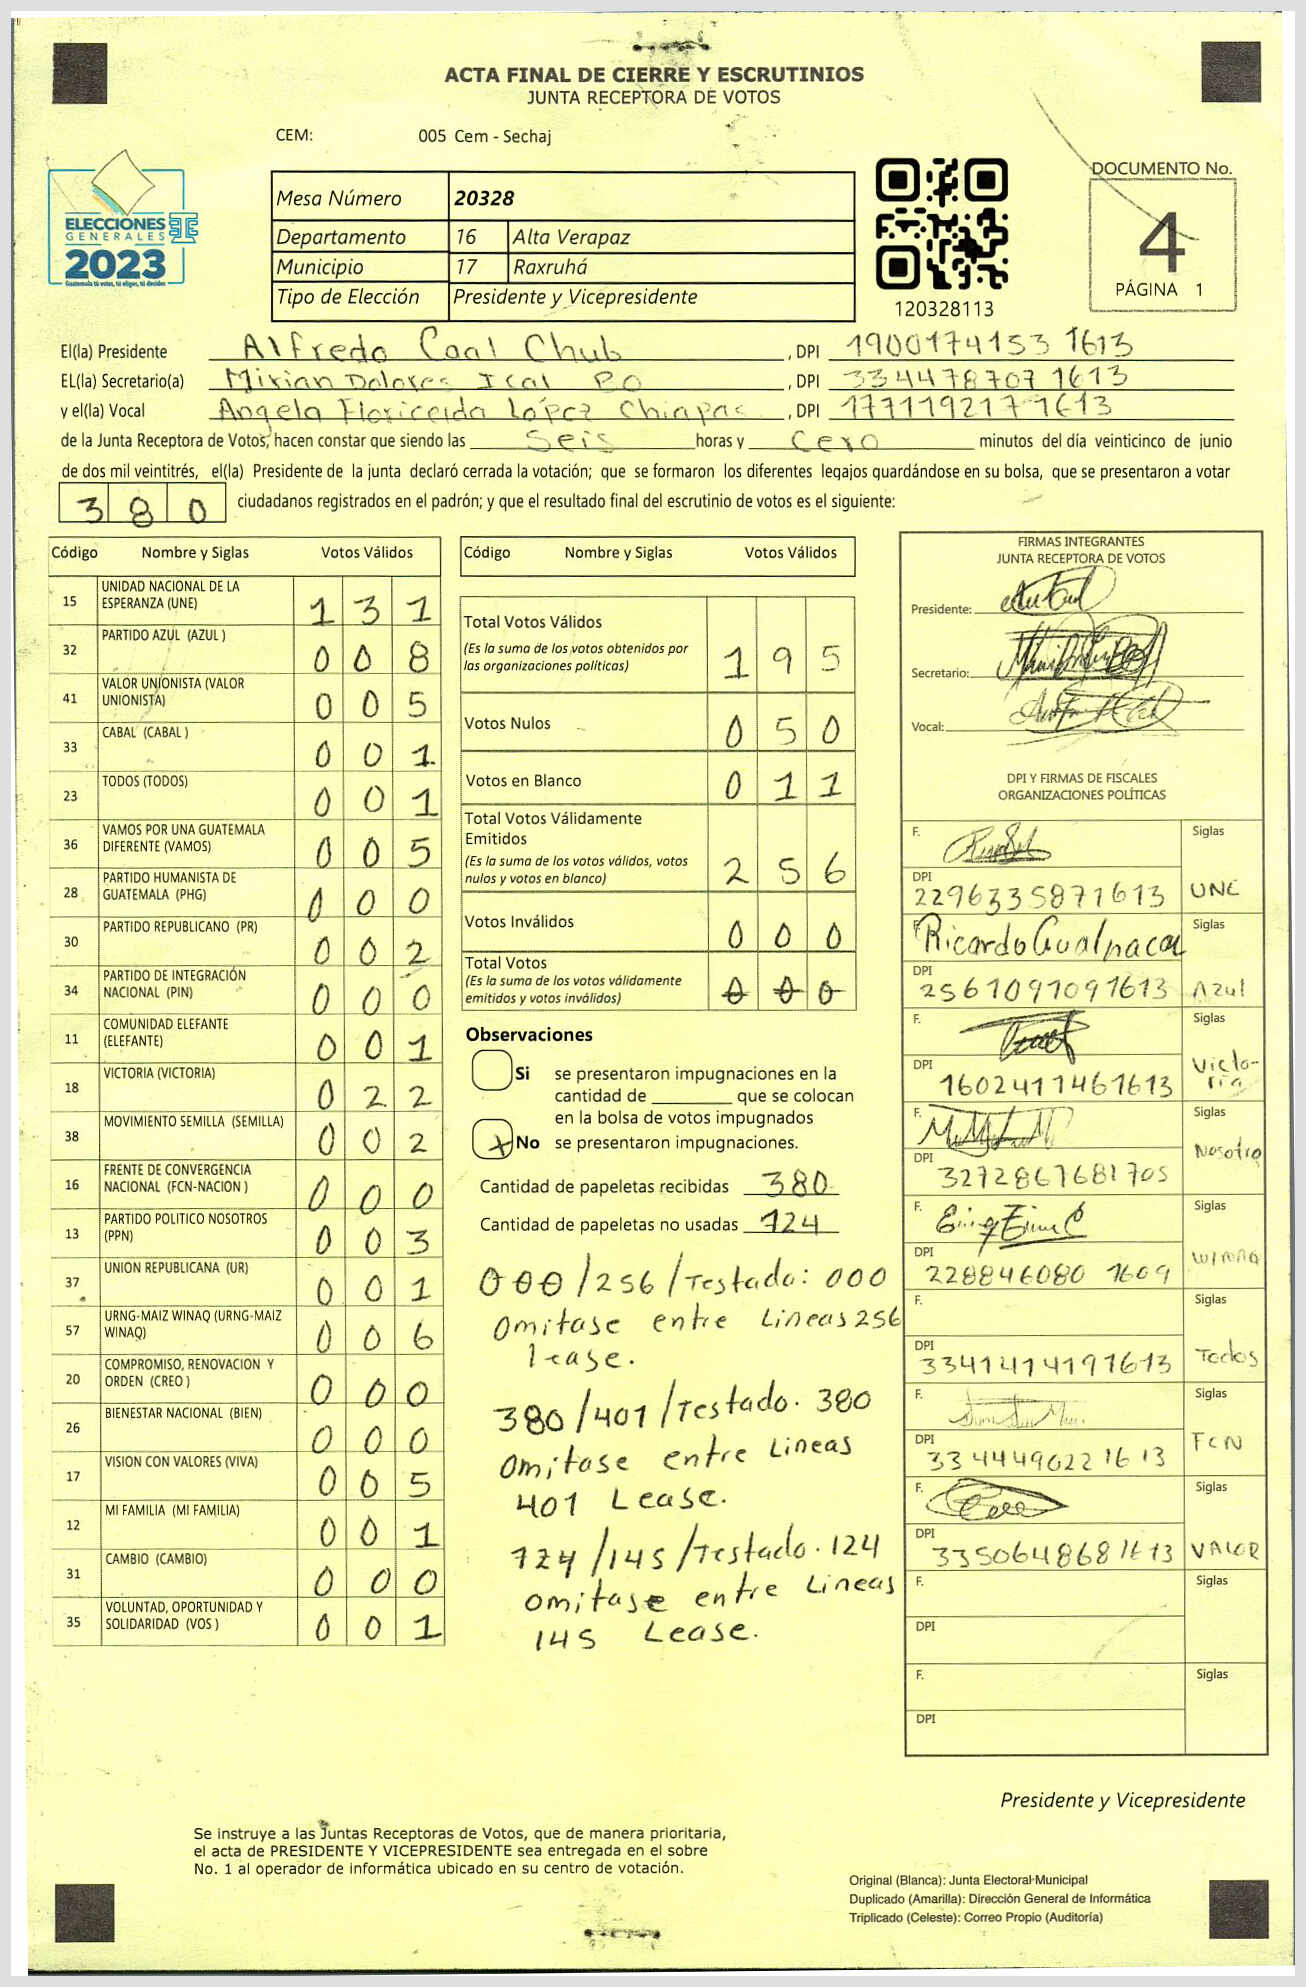 ACTA FINAL DE CIERRE Y ESCRUTINIOS
JUNTA RECEPTORA DE VOTOS
CEM: 005 Cem - Sechaj
ELECCIONES
GENERALES
2023
Guatemala tú votas, tú eliges, tú decides
Mesa Número 20328
Departamento 16 Alta Verapaz
Municipio 17 Raxruhá
Tipo de Elección Presidente y Vicepresidente
120328113
DOCUMENTO No.
4
PÁGINA 1
El(la) Presidente Alfredo Caal Chub, DPI 1900174153 1613
EL(la) Secretario(a) Mirian Dolores Ical PO, DPI 334478707 1613
y el(la) Vocal Angela Floricelda López Chiapas, DPI 177119217 1613
de la Junta Receptora de Votos, hacen constar que siendo las Seis horas y Cero minutos del día veinticinco de junio
de dos mil veintitrés, el(la) Presidente de la junta declaró cerrada la votación; que se formaron los diferentes legajos guardándose en su bolsa, que se presentaron a votar
380 ciudadanos registrados en el padrón; y que el resultado final del escrutinio de votos es el siguiente:
Código Nombre y Siglas Votos Válidos
15 UNIDAD NACIONAL DE LA ESPERANZA (UNE) 131
32 PARTIDO AZUL (AZUL ) 008
41 VALOR UNIONISTA (VALOR UNIONISTA) 005
33 CABAL (CABAL ) 001
23 TODOS (TODOS) 001
36 VAMOS POR UNA GUATEMALA DIFERENTE (VAMOS) 005
28 PARTIDO HUMANISTA DE GUATEMALA (PHG) 000
30 PARTIDO REPUBLICANO (PR) 002
34 PARTIDO DE INTEGRACIÓN NACIONAL (PIN) 000
11 COMUNIDAD ELEFANTE (ELEFANTE) 001
18 VICTORIA (VICTORIA) 022
38 MOVIMIENTO SEMILLA (SEMILLA) 002
16 FRENTE DE CONVERGENCIA NACIONAL (FCN-NACION ) 000
13 PARTIDO POLITICO NOSOTROS (PPN) 003
37 UNION REPUBLICANA (UR) 001
57 URNG-MAIZ WINAQ (URNG-MAIZ WINAQ) 006
20 COMPROMISO, RENOVACION Y ORDEN (CREO ) 000
26 BIENESTAR NACIONAL (BIEN) 000
17 VISION CON VALORES (VIVA) 005
12 MI FAMILIA (MI FAMILIA) 001
31 CAMBIO (CAMBIO) 000
35 VOLUNTAD, OPORTUNIDAD Y SOLIDARIDAD (VOS ) 001
Código Nombre y Siglas Votos Válidos
Total Votos Válidos 195
(Es la suma de los votos obtenidos por
las organizaciones políticas)
Votos Nulos 050
Votos en Blanco 011
Total Votos Válidamente
Emitidos 256
(Es la suma de los votos válidos, votos
nulos y votos en blanco)
Votos Inválidos 000
Total Votos 000
(Es la suma de los votos válidamente
emitidos y votos inválidos)
Observaciones
Si se presentaron impugnaciones en la
cantidad de ________ que se colocan
en la bolsa de votos impugnados
x No se presentaron impugnaciones.
Cantidad de papeletas recibidas 380
Cantidad de papeletas no usadas 124
000/256/Testado: 000
omitase entre Lineas 256
lease.
380/401/Testado. 380
omitase entre Lineas
401 Lease.
124/145/Testado. 124
omitase entre Lineas
145 Lease.
FIRMAS INTEGRANTES
JUNTA RECEPTORA DE VOTOS
Presidente:
Secretario:
Vocal:
DPI Y FIRMAS DE FISCALES
ORGANIZACIONES POLÍTICAS
F. Siglas
DPI 2296335871613 UNE
F. Ricardo Siglas
DPI 2561091091613 Azul
F. Siglas
DPI 1602411461613 Victoria
F. Siglas
DPI 3272867681705 Nosotro
F. Siglas
DPI 228846080 1609 WINAQ
F. Siglas
DPI 3341414191613 Todos
F. Siglas
DPI 334449022 1613 FCN
F. Siglas
DPI 335064868 1613 VALOR
F. Siglas
DPI
F. Siglas
DPI
Presidente y Vicepresidente
Se instruye a las Juntas Receptoras de Votos, que de manera prioritaria,
el acta de PRESIDENTE Y VICEPRESIDENTE sea entregada en el sobre
No. 1 al operador de informática ubicado en su centro de votación.
Original (Blanca): Junta Electoral Municipal
Duplicado (Amarilla): Dirección General de Informática
Triplicado (Celeste): Correo Propio (Auditoría)